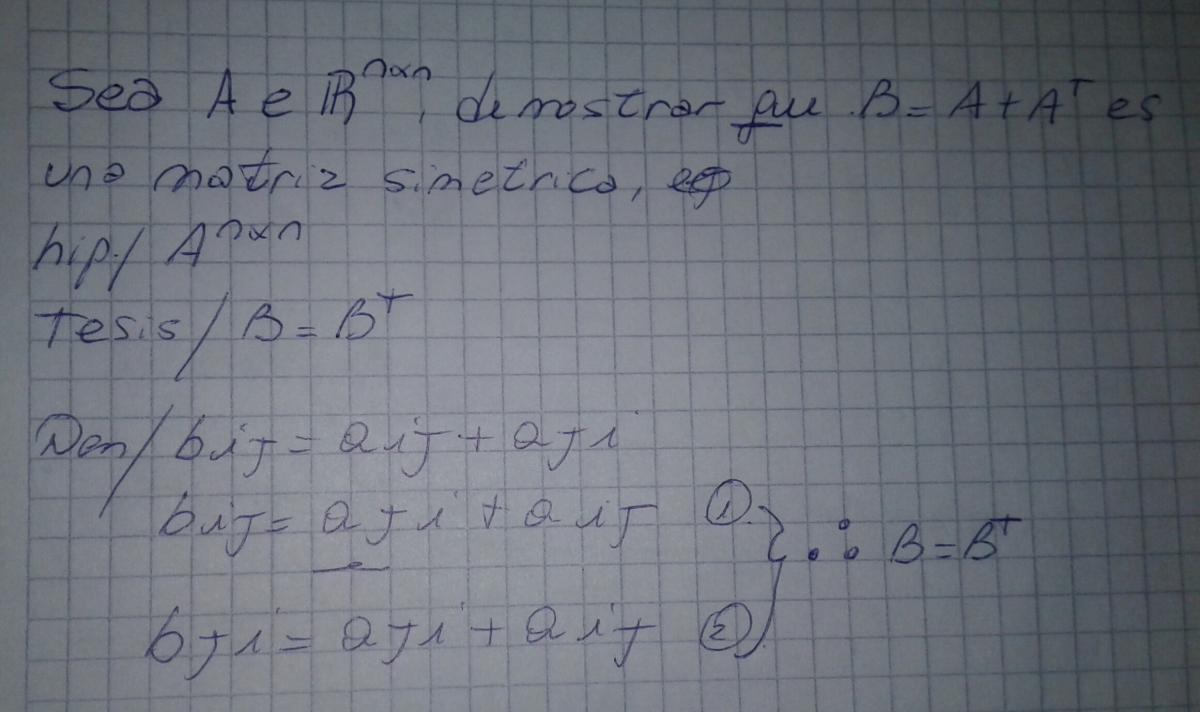 Sea A e ℝⁿˣⁿ, demostrar que B = A + Aᵀ es
una matriz simetrica,
hip./ Aⁿˣⁿ
Tesis / B = Bᵀ
Dem/ bij = aij + aji
bij = aji + aij ①
∴ B = Bᵀ
bji = aji + aij ②